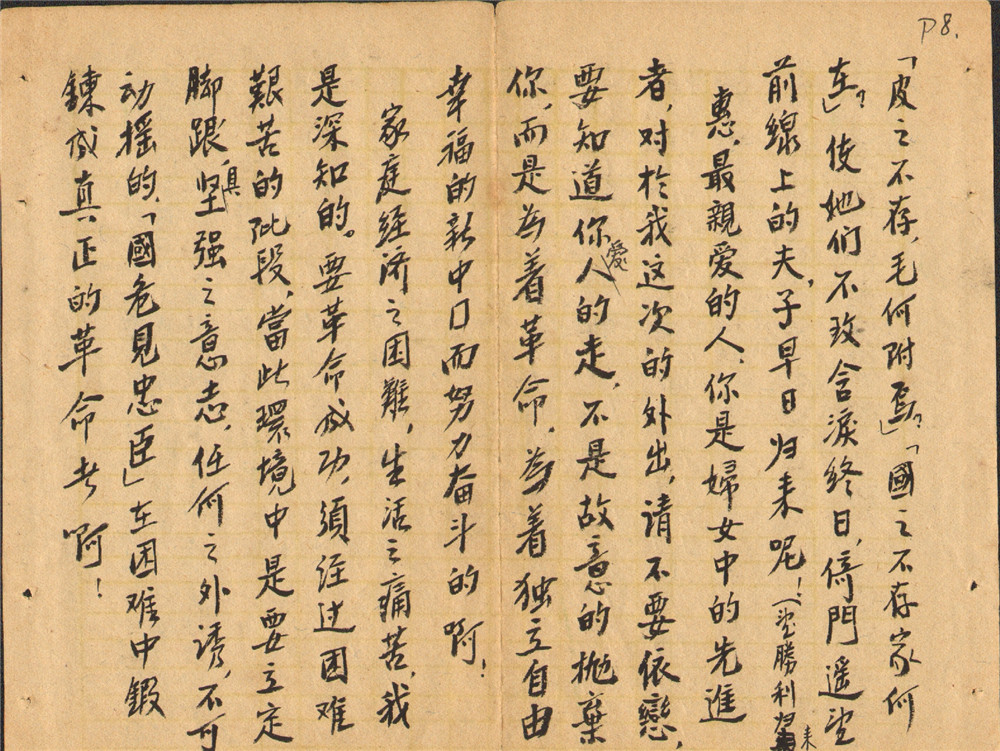 P8.
「皮之不存,毛何附焉?」「國之不存家何
在」?使她们不致含淚终日,倚門遥望
前線上的夫,子早日归来呢!(望勝利归来
惠,最親爱的人:你是婦女中的先進
者,对於我这次的外出,请不要依戀,
要知道你愛人的走,不是故意的抛棄
你,而是為着革命,為着独立自由
幸福的新中口而努力奋斗的啊!
家庭经济之困難,生活之痛苦,我
是深知的。要革命成功,須经过困难
艱苦的阶段,當此環境中是要立定
脚跟,具坚强之意志,任何之外诱,不可
动摇的,「國危見忠臣」在困难中鍛
鍊成真正的革命者啊!